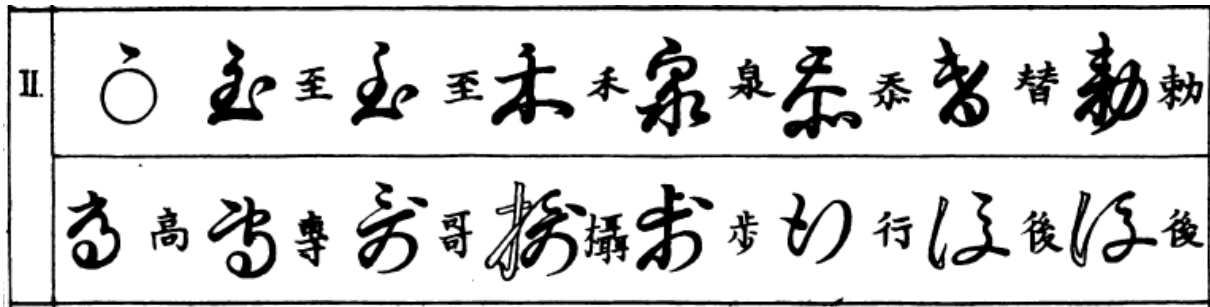 II. 至 至 至 至 禾 禾 泉 泉 忝 忝 替 替 勅 勅
高 高 專 專 哥 哥 攝 攝 步 步 行 行 後 後 後 後